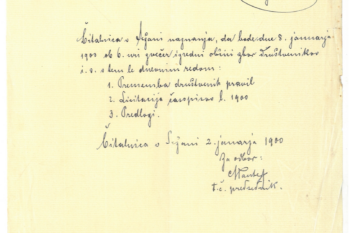 Čitalnica v Ljani naznanja, da bode dne 8. januvarja
1900 ob 6. uri zvečer izredni občni zbor društvenikov
s tem le dnevnim redom:
1. Prememba društvenih pravil
2. Licitacija časopisov l. 1900
3. Predlogi.
Čitalnica v Ljani 2. januarja 1900
Za odbor:
t. č. predsednik.